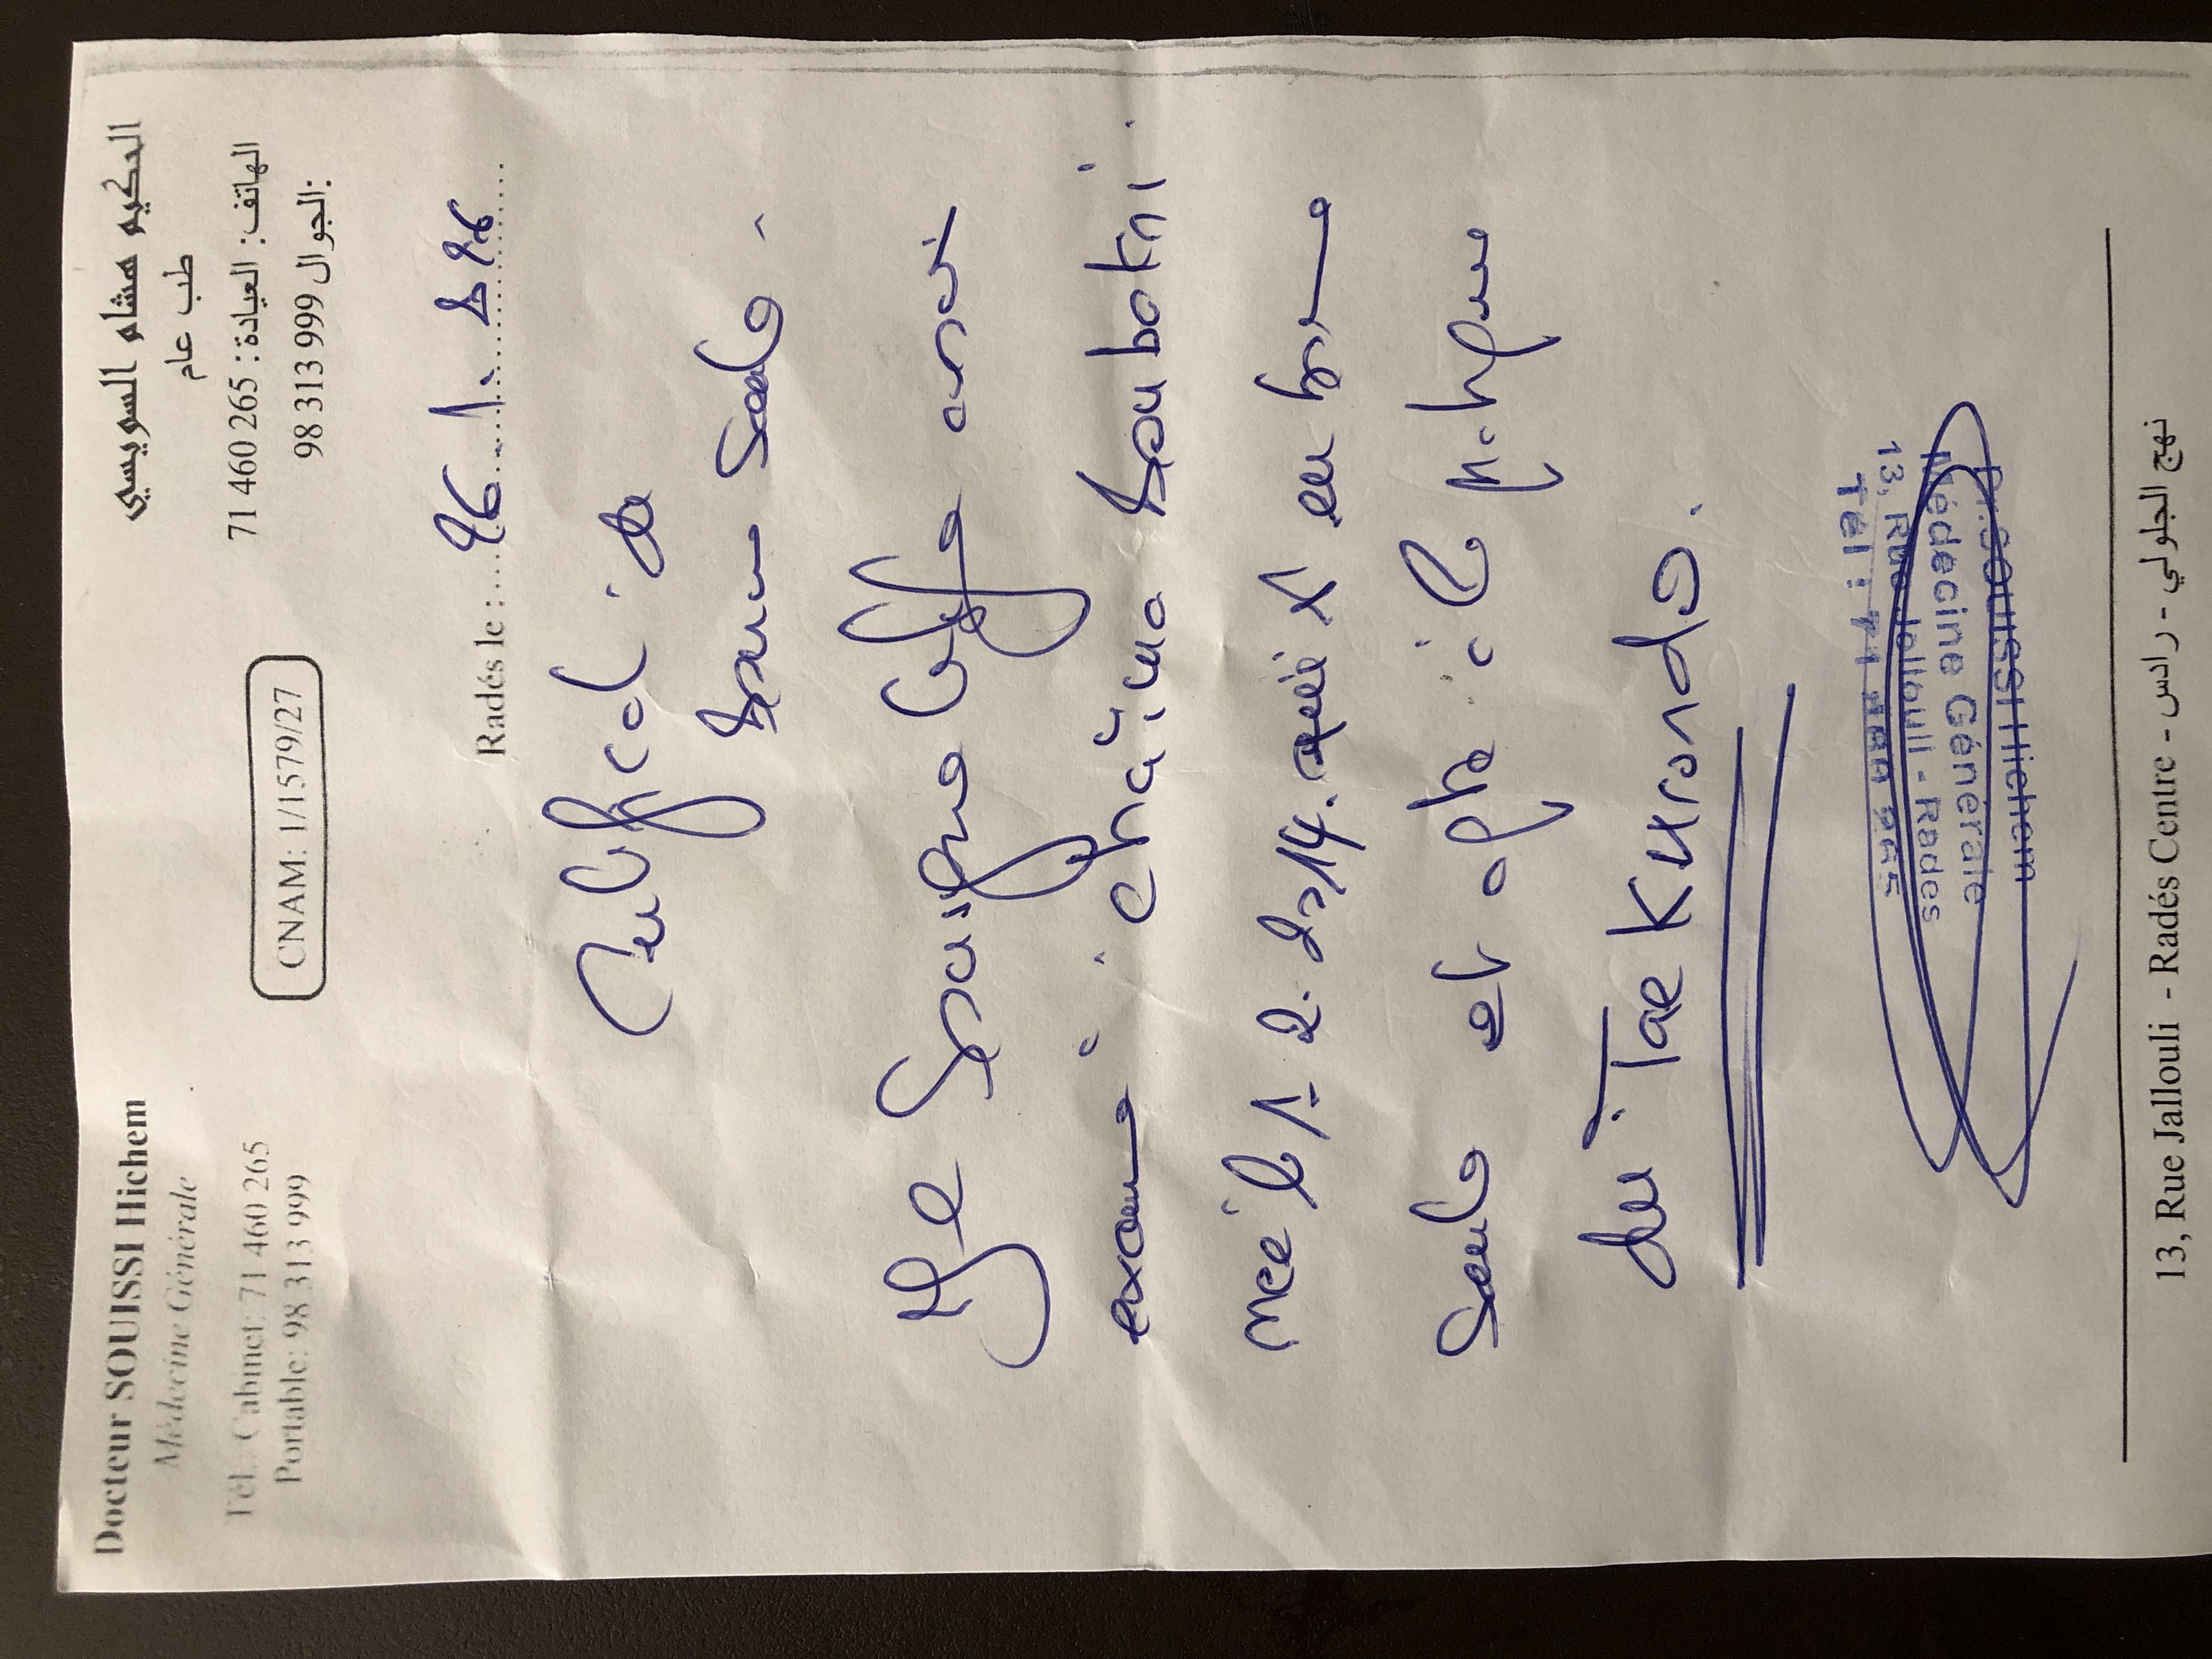 Docteur SOUISSI Hichem
Médecine Générale
Tél.: Cabinet: 71 460 265
Portable: 98 313 999
CNAM: 1/1579/27
الحكيم هشام السويسي
طب عام
الهاتف: العيادة: 71 460 265
الجوال: 98 313 999
Radés le :
Certificat de
bonne Santé.
Je Soussigné Certifie avoir
examiné : chaïma Soubakni
née le 1. 2. 2014. en bonne
Santé et apte à la pratique
du Taekwondo.
Dr. SOUISSI Hichem
Médecine Générale
13, Rue Jallouli - Rades
Tél : 71 460 265
13, Rue Jallouli - Radés Centre - نهج الجلولي - رادس